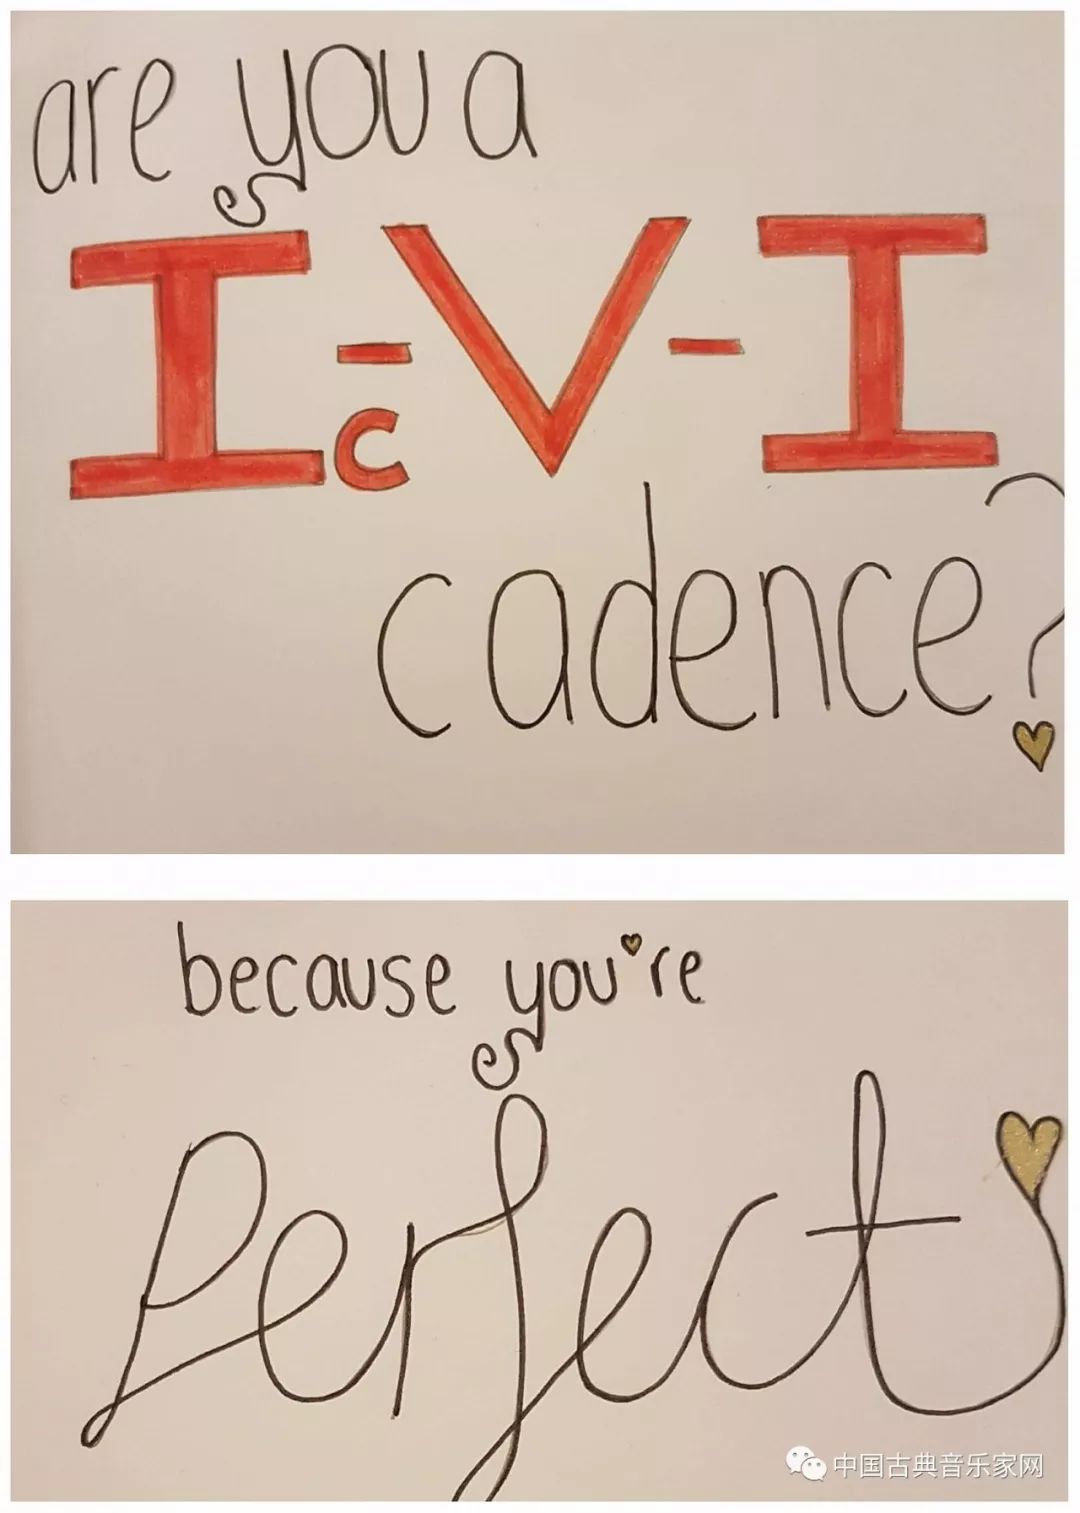 are you a
Ic-V-I
cadence?
because you're
Perfect
中国古典音乐家网